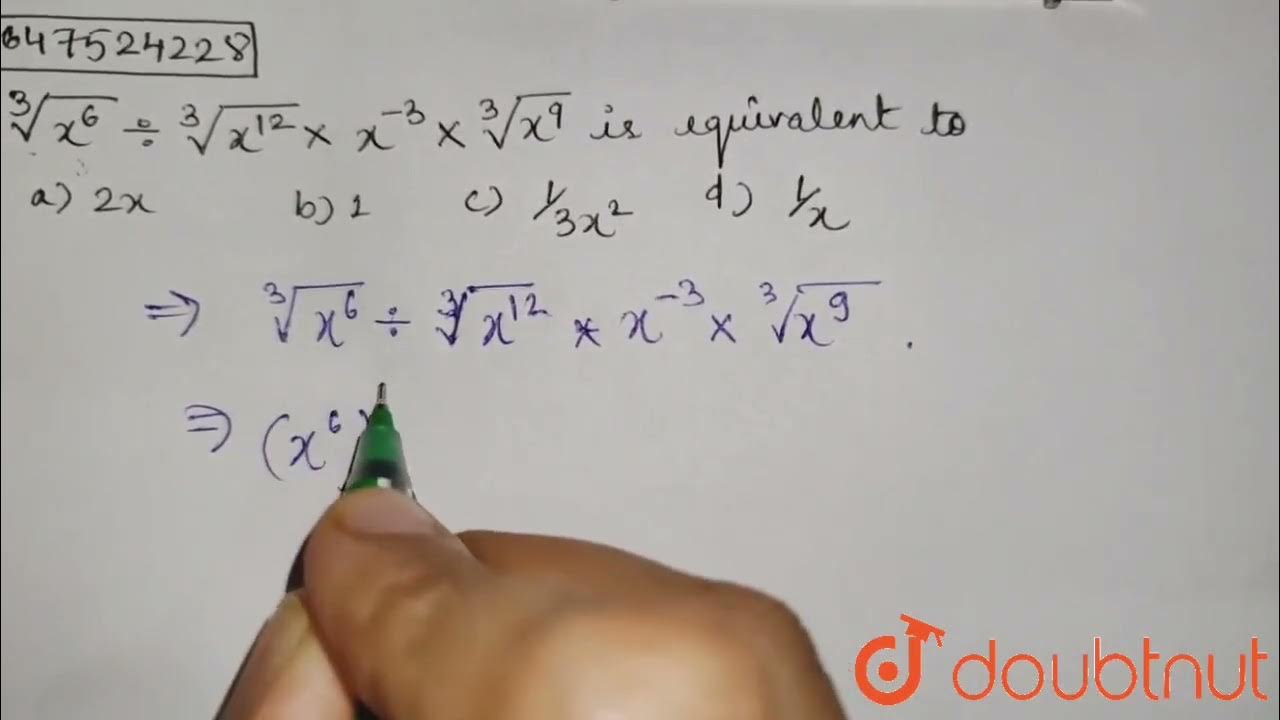 647524228
∛x⁶ ÷ ∛x¹² × x⁻³ × ∛x⁹ is equivalent to
a) 2x b) 1 c) 1/3x² d) 1/x
⇒ ∛x⁶ ÷ ∛x¹² × x⁻³ × ∛x⁹ .
⇒ (x⁶)
doubtnut